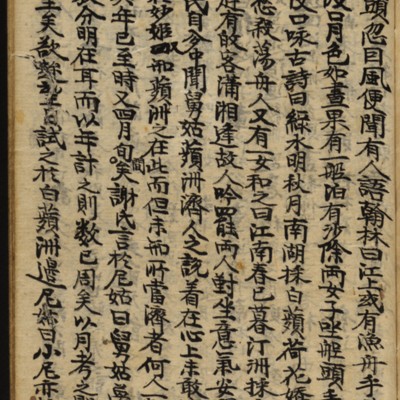 頭忽曰風便聞有人語翰林曰江上或有漁舟乎
月色如晝果有一船泊有沙際兩女子坐船頭手
口咏古詩曰綠水明秋月南湖採白蘋荷花嬌
愁殺蕩舟人又有一女和之曰江南春已暮汀洲採
有故客瀟湘逢故人吟罷兩人對坐意氣安
氏自夢中聞舅姑蘋洲濟人之說着在心上未敢
於妙姬 而蘋洲之在此而但未 所當濟者何人
年已至時又四月旬間矣謝氏言於尼姑曰舅姑
分明在耳而以年計之則數已周矣以月考之則
至矣欲 日試之於白蘋洲邊尼姑曰小尼亦